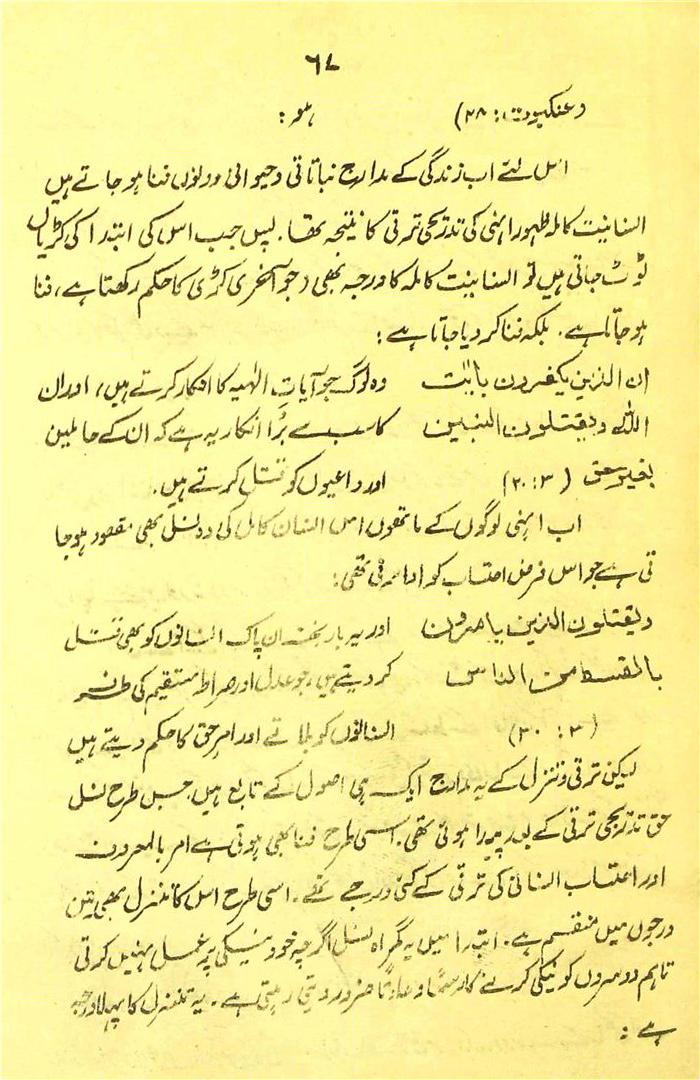 ۶۷
(عنکبوت: ۲۸) ہو:
اس لئے اب زندگی کے مدارج نباتاتی و حیوانی دونوں فنا ہو جاتے ہیں
انسانیت کاملہ ظہور انہی کی تدریجی ترقی کا نتیجہ تھا۔ پس جب اس کی ابتدا کی کڑیاں
ٹوٹ جاتی ہیں تو انسانیت کاملہ کا درجہ بھی (جو آخری کڑی کا حکم رکھتا ہے، فنا
ہو جاتا ہے۔ بلکہ فنا کر دیا جاتا ہے:
ان الذین یکفرون بایٰت وہ لوگ جو آیاتِ الٰہیہ کا انکار کرتے ہیں، اور ان
اللہ و یقتلون النبین کا سب سے بڑا انکار یہ ہے کہ ان کے حاملین
بغیر حق (۳:۲۰) اور داعیوں کو قتل کرتے ہیں۔
اب انہی لوگوں کے ہاتھوں اس انسان کامل کی وہ نسل بھی مقصور ہو جا
تی ہے جو اس فرض احتساب کو ادا کرتی تھی:
و یقتلون الذین یامرون اور یہ بدبخت ان پاک انسانوں کو بھی قتل
بالقسط من الناس کر دیتے ہیں، جو عدل اور صراط مستقیم کی طرف
(۳: ۲۰) انسانوں کو بلاتے اور امر حق کا حکم دیتے ہیں
لیکن ترقی و تنزل کے یہ مدارج ایک ہی اصول کے تابع ہیں، جس طرح نسل
حق تدریجی ترقی کے بعد پیدا ہوئی تھی۔ اسی طرح فنا بھی ہوتی ہے امر بالمعروف
اور احتساب انسانی کی ترقی کے کئی درجے تھے۔ اسی طرح اس کا تنزل بھی تین
درجوں میں منقسم ہے۔ ابتدا میں یہ گمراہ نسل اگرچہ خود نیکی پر عمل نہیں کرتی
تاہم دوسروں کو نیکی کرنے کا رسمًا و عادتًا ضرور دیتی رہتی ہے۔ یہ تنزل کا پہلا درجہ
ہے: